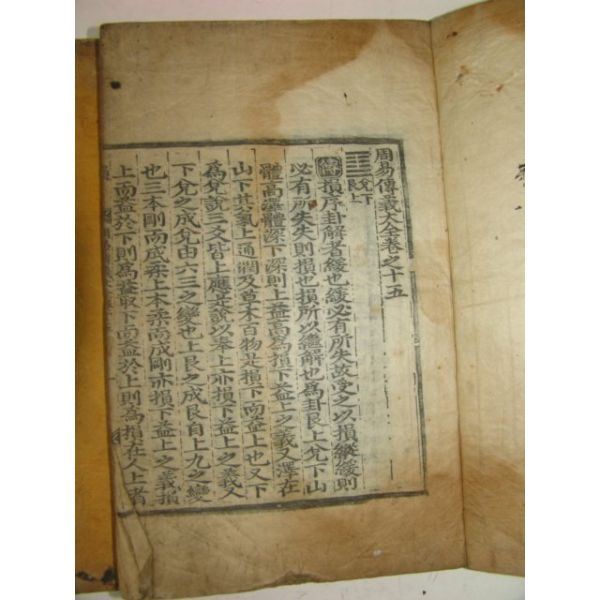 周易傳義大全卷之十五
兌下
艮上
傳損序卦解者緩也緩必有所失故受之以損縱緩則
必有所失失則損也損所以繼解也爲卦艮上兌下山
體高澤體深下深則上益高爲損下益上之義又澤在
山下其氣上通潤及草木百物是損下而益上也又下
爲兌說三爻皆上應是說以奉上亦損下益上之義又
下兌之成兌由六三之變也上艮之成艮自上九之變
也三本剛而成柔上本柔而成剛亦損下益上之義損
上而益於下則爲益取下而益於上則爲損在人上者